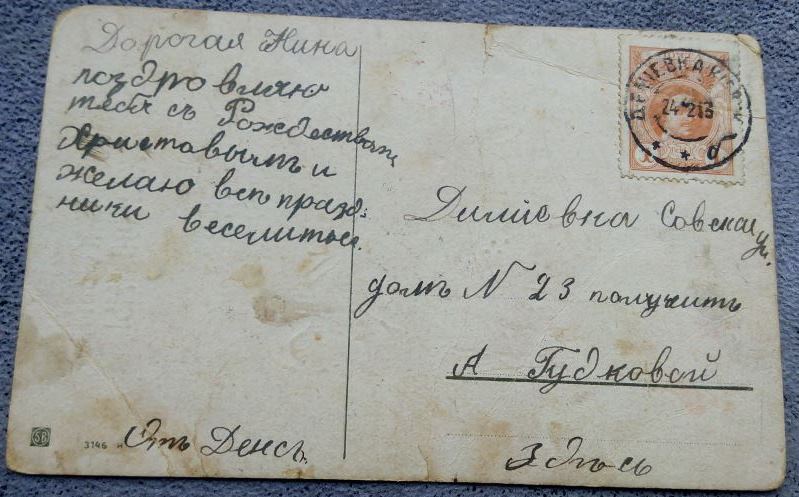 Дорогая Нина
поздровляю
тебя съ Рождествам
Христовымъ и
желаю всѣ празд-
ники веселиться.
Отъ Денсъ.
3146
24 12 13
Дилиевка Совская ул.
домъ N 23 получить
А Гудковой
Здѣсь